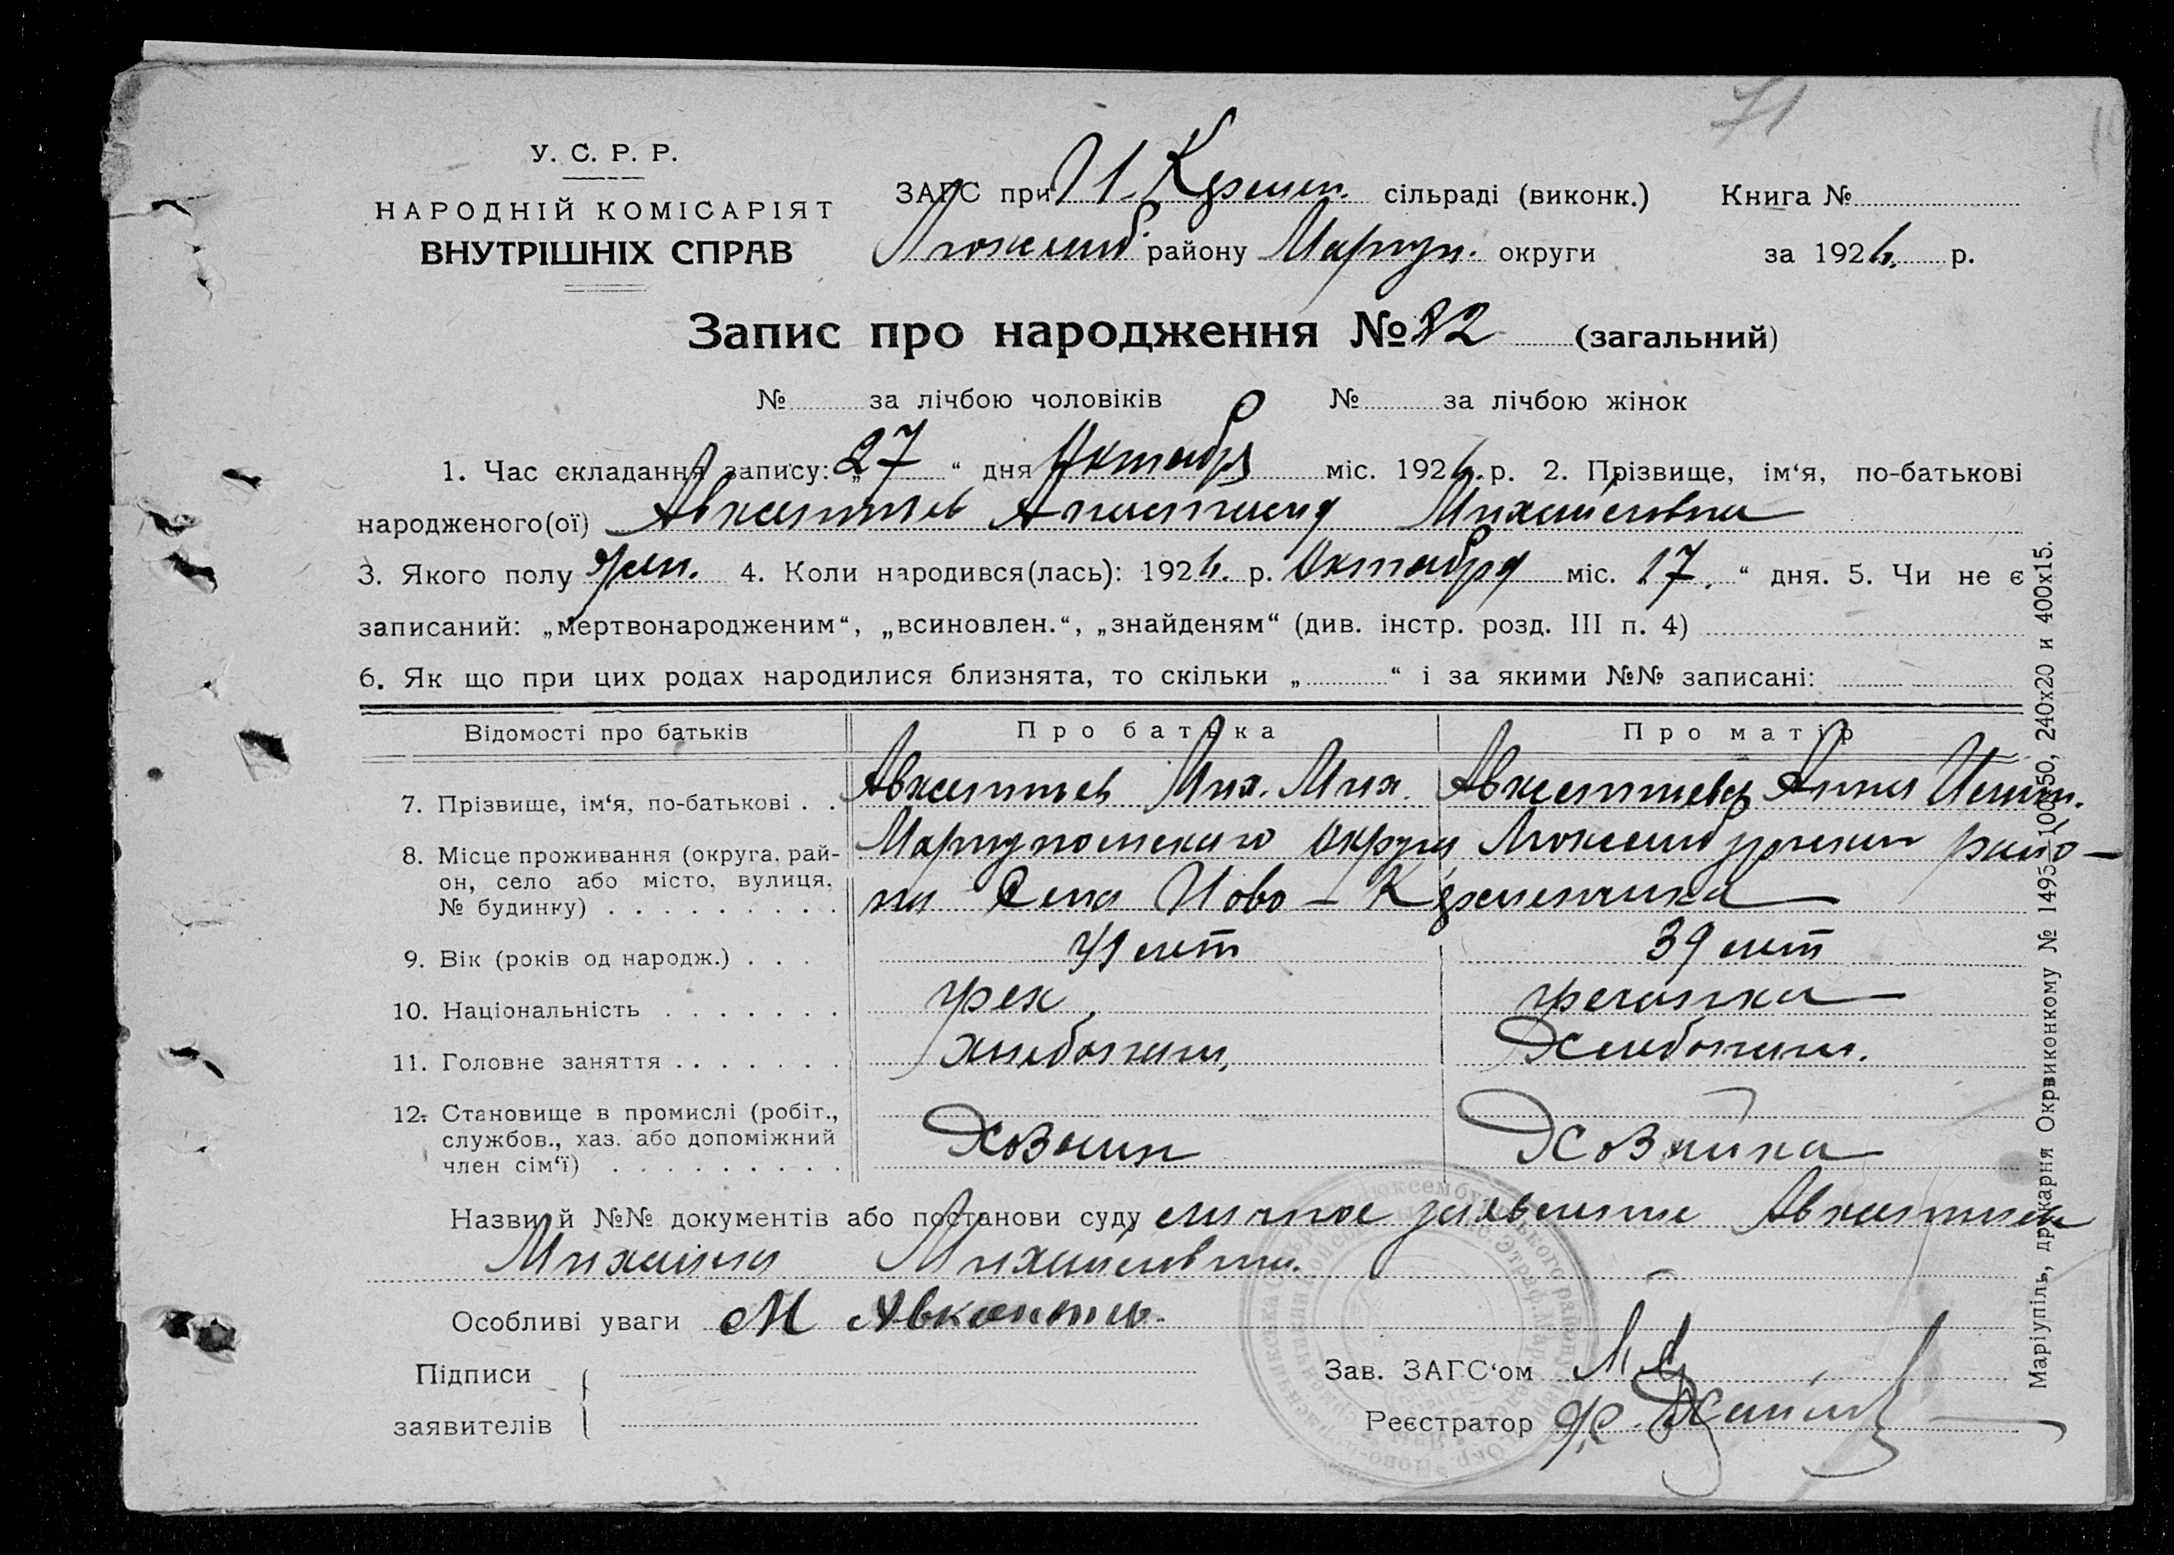 71
У. С. Р. Р.
НАРОДНІЙ КОМІСАРІЯТ
ВНУТРІШНІХ СПРАВ
ЗАГС при Н-Кермен. сільраді (виконк.) Книга №
Люксемб. району Мариуп. округи за 1926. р.
Запис про народження № 82 (загальний)
№ за лічбою чоловіків № за лічбою жінок
1. Час складання запису: „27“ дня Октября міс. 1926. р. 2. Прізвище, ім‘я, по-батькові
народженого(ої) Авксентьев Михайловна
3. Якого полу жен. 4. Коли народився(лась): 1926. р. Октября міс. 17. “ дня. 5. Чи не є
записаний: „мертвонародженим“, „всиновлен.“, „знайденям“ (див. інстр. розд. III п. 4)
6. Як що при цих родах народилися близнята, то скільки „ “ і за якими №№ записані:
Відомості про батьків Про батька Про матір
7. Прізвище, ім‘я, по-батькові . . Авксентьев Мих. Мих. Авксентьева Анна
8. Місце проживання (округа, рай-
он, село або місто, вулиця,
№ будинку) . . . . . . . . .
Мариупольского округа Люксембургского райо-
на Села Ново-Керменчика
9. Вік (років од народж.) . . . 41 лет 39 лет
10. Національність . . . . . . . грек гречанка
11. Головне заняття . . . . . . . хлебопаш. Хлебопаш.
12. Становище в промислі (робіт.,
службов., хаз. або допоміжний
член сім‘ї) . . . . . . . . .
Хозяин Хозяйка
Назви й №№ документів або постанови суду личное заявление Авксентьева
Михаила Михайловича.
Особливі уваги М Авксентьев
Підписи
заявителів
Зав. ЗАГС‘ом
Реєстратор
Маріупіль, друкарня Окрвиконкому № 1495-100х50, 240х20 и 400х15.